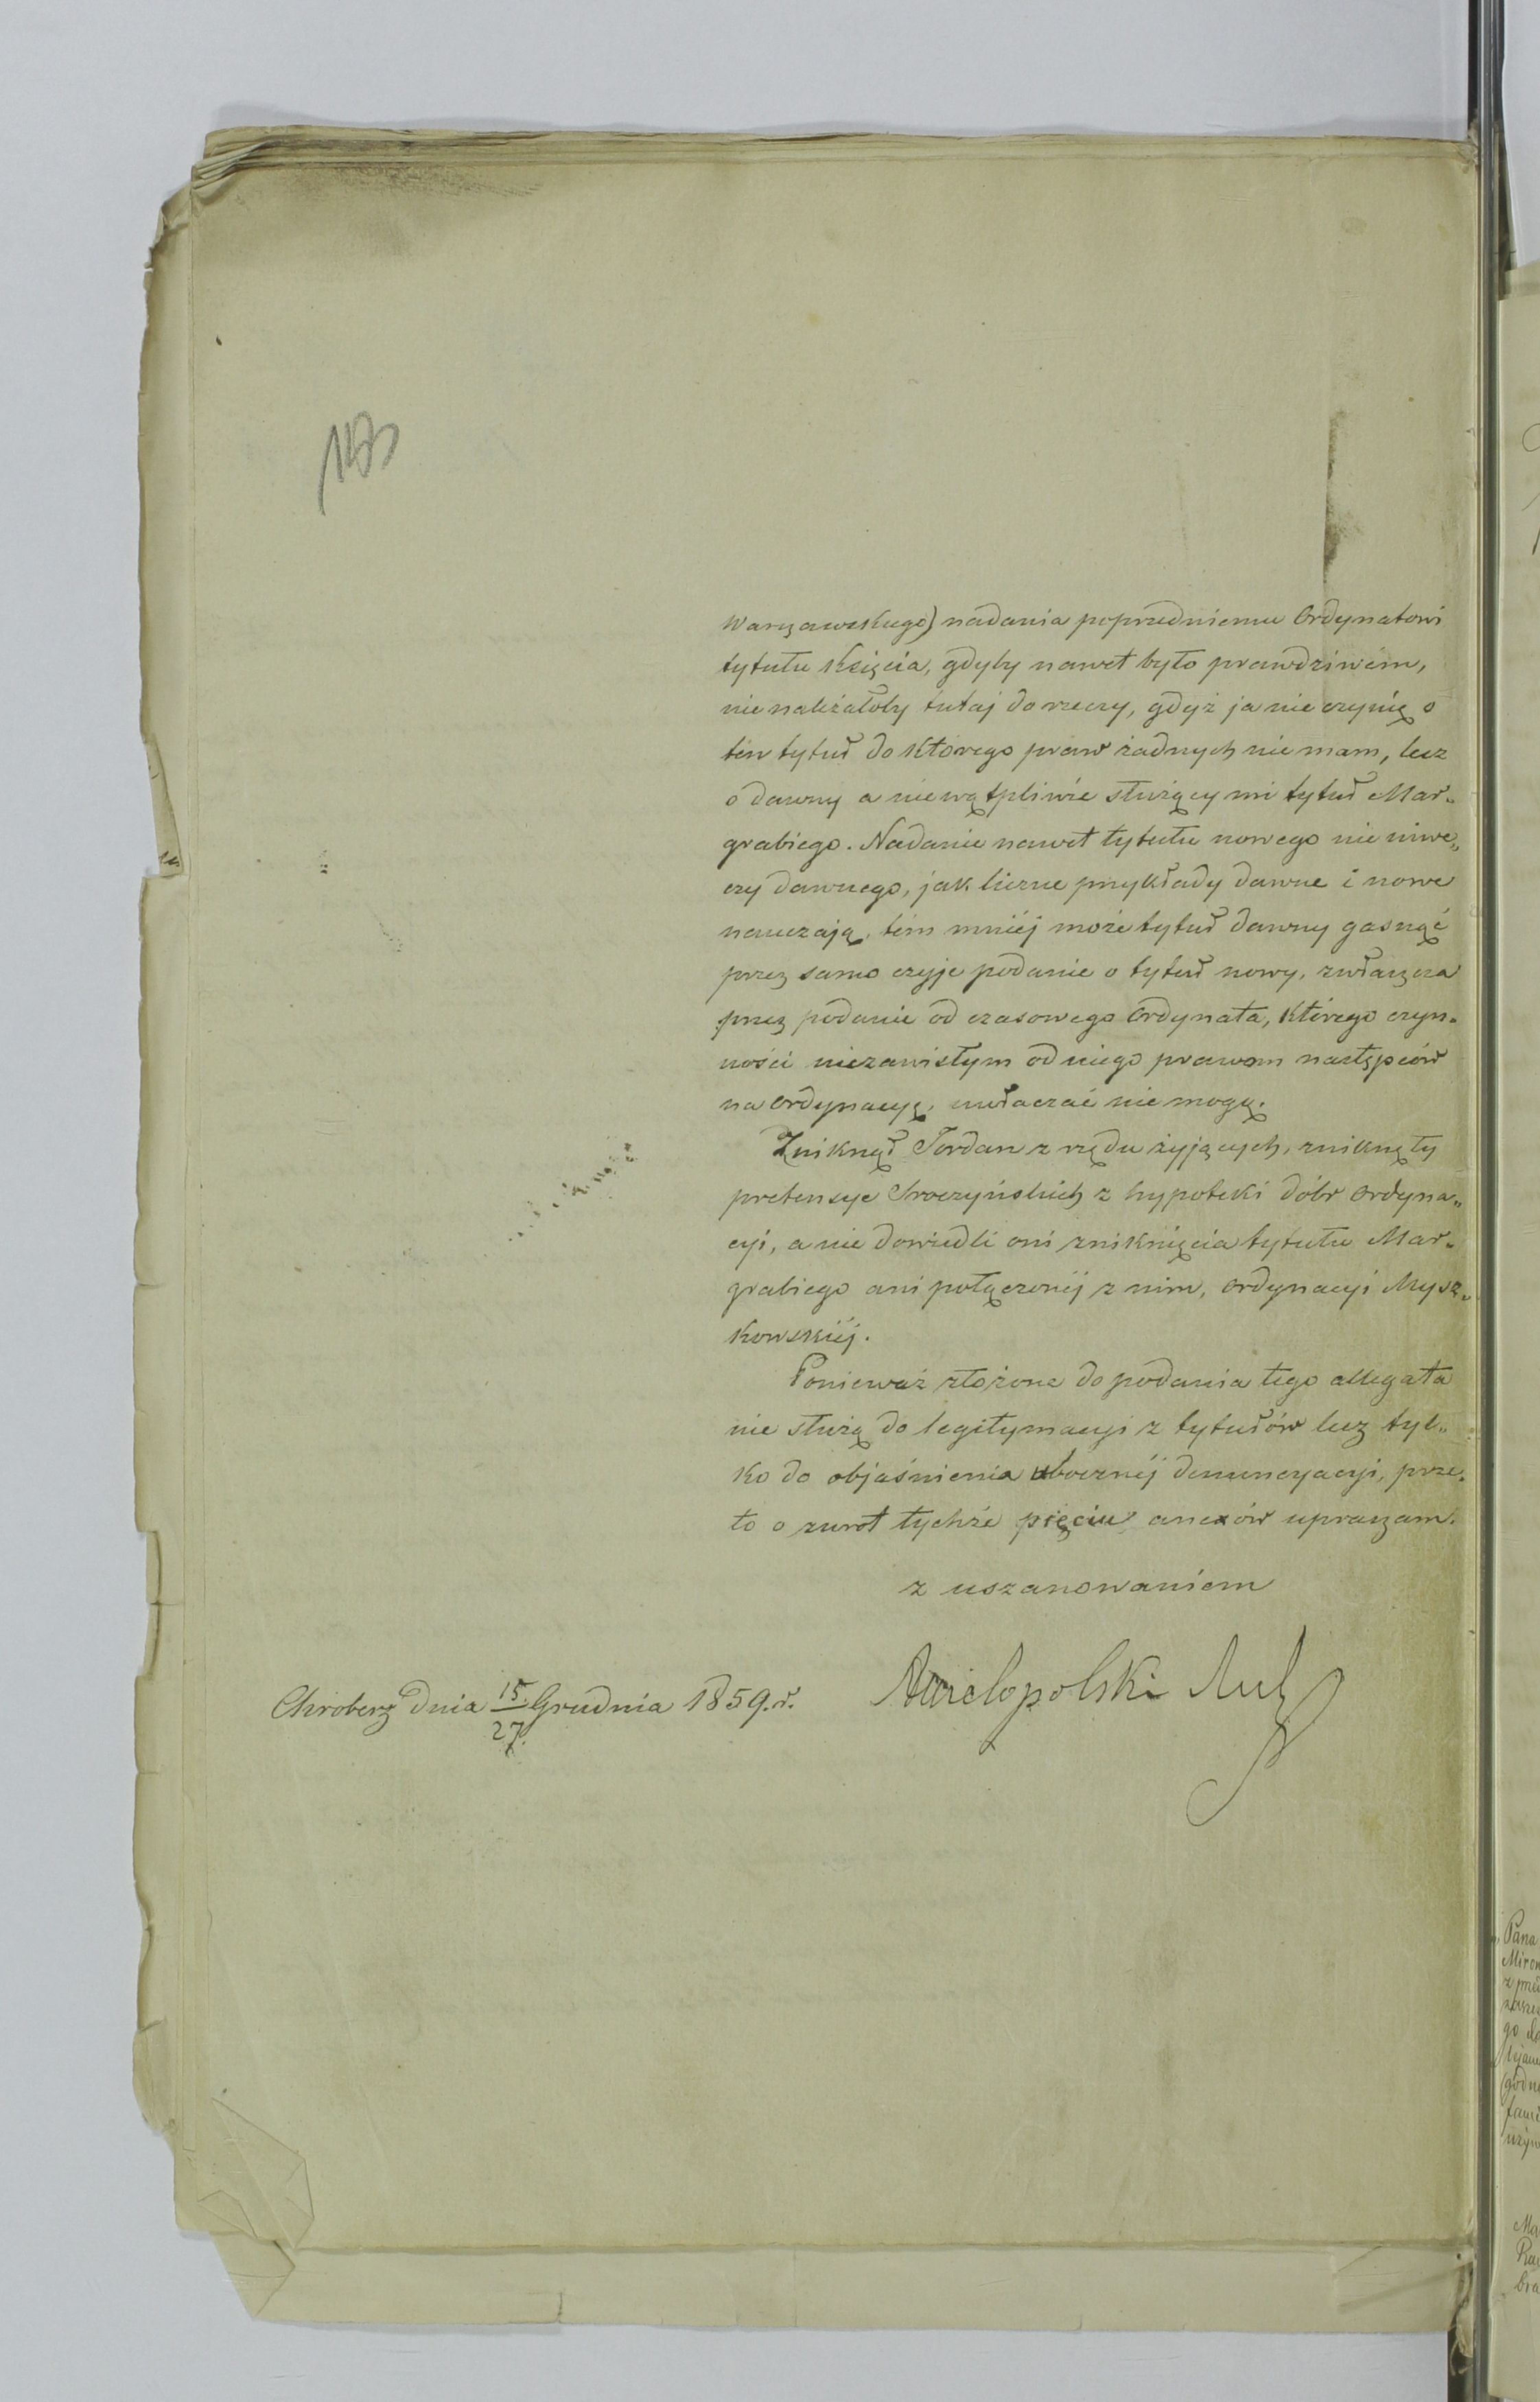 Warszawskiego) nadania poprzedniemu Ordynatowi
tytułu Księcia, gdyby nawet było prawdziwém,
nie należałoby tutaj do rzeczy, gdyż ja nie czynię o
ten tytuł do którego praw żadnych nie mam, lecz
o dawny a niewątpliwie służący mi tytuł Mar„
grabiego. Nadanie nawet tytułu nowego nie niwe„
czy dawnego, jak liczne przykłady dawne i nowe
nauczają, tém mniéj może tytuł dawny gasnąć
przez samo czyje podanie o tytuł nowy, zwłaszcza
przez podanie od czasowego Ordynata, którego czyn„
ności niezawisłym od niego prawom następców
na Ordynacyę, uwłaczać nie mogą.
Zniknął Jordan z rzędu żyjących, zniknęły
pretensye Sroczyńskich z hypoteki dóbr Ordyna„
cyi, a nie dowiedli oni zniknięcia tytułu Mar„
grabiego ani połączonéj z nim, Ordynacyi Mysz„
kowskiéj.
Ponieważ złożone do podania tego allegata
nie służą do legitymacyi z tytułów lecz tyl„
ko do objaśnienia ubocznéj denuncyacyi, prze„
to o zwrot tychże pięciu anexów upraszam.
z uszanowaniem
Chroberz dnia 15/27 Grudnia 1859. r.
AWielopolski